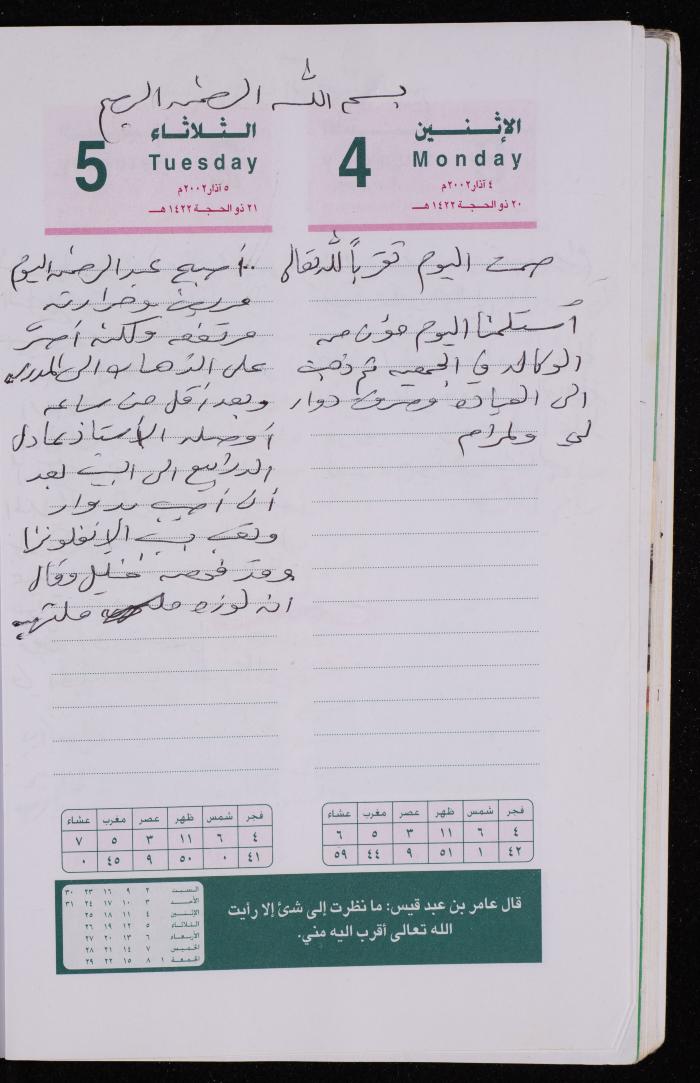 بسم الله الرحمن الرحيم
الإثنين
Monday
4
٤ آذار ٢٠٠٢م
٢٠ ذو الحجة ١٤٢٢ هـ
صمت اليوم تقرباً لله تعالى
أستلمنا اليوم مؤن من
الوكاله في الجمعيه ثم ذهبت
الى العياده وصرفت دواء
لي ولمرام
الثلاثاء
Tuesday
5
٥ آذار ٢٠٠٢م
٢١ ذو الحجة ١٤٢٢ هـ
أصبح عبد الرحمن اليوم
مريض وحرارته
مرتفعه ولكنه أصر
على الذهاب الى المدرسه
وبعد أقل من ساعه
أوصله الأستاذ عادل
الى البيت بعد
أن أصيب بدوار
وتعب بسبب الإنفلونزا
وقد فحصه خليل وقال
انه لوزه ملتهبه
فجر شمس ظهر عصر مغرب عشاء
٤ ٦ ١١ ٣ ٥ ٦
٤٢ ١ ٥١ ٩ ٤٤ ٥٩
فجر شمس ظهر عصر مغرب عشاء
٤ ٦ ١١ ٣ ٥ ٧
٤١ ٠ ٥٠ ٩ ٤٥ ٠
قال عامر بن عبد قيس: ما نظرت إلى شئ إلا رأيت
الله تعالى أقرب اليه مني.
السبت ٢ ٩ ١٦ ٢٣ ٣٠
الأحد ٣ ١٠ ١٧ ٢٤ ٣١
الإثنين ٤ ١١ ١٨ ٢٥
الثلاثاء ٥ ١٢ ١٩ ٢٦
الأربعاء ٦ ١٣ ٢٠ ٢٧
الخميس ٧ ١٤ ٢١ ٢٨
الجمعة ١ ٨ ١٥ ٢٢ ٢٩